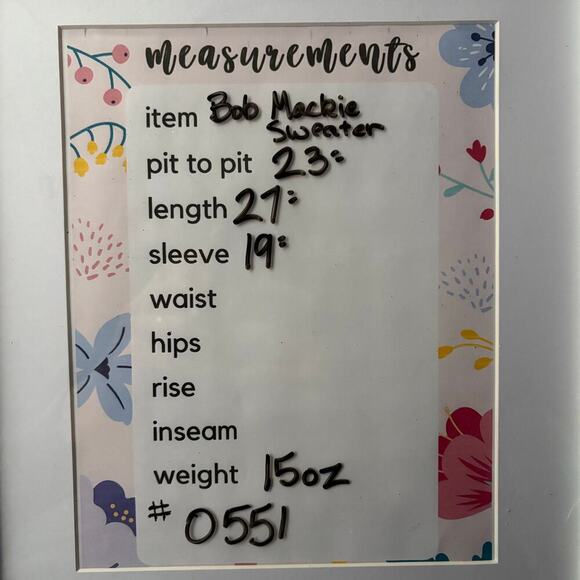 measurements
item Bob Mackie
Sweater
pit to pit 23"
length 27"
sleeve 19"
waist
hips
rise
inseam
weight 15oz
# 0551